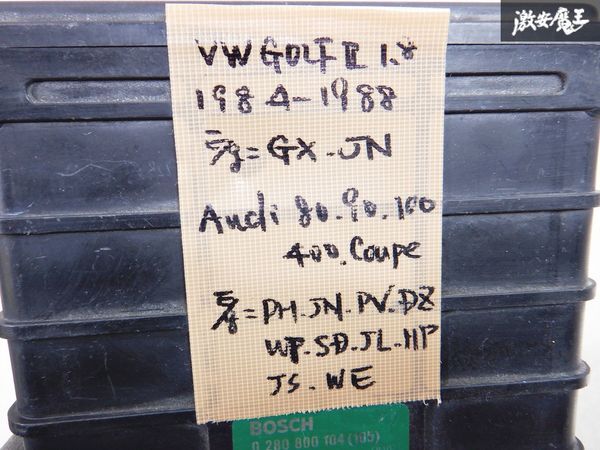 激安魔王
VW GOLF II 1.8
1984-1988
E/g=GX.JN
Audi 80.90.100
400.Coupe
E/g=PH.JN.PV.DZ
WP.SD.JL.HP
JS.WE
BOSCH
0 280 800 104 (105)